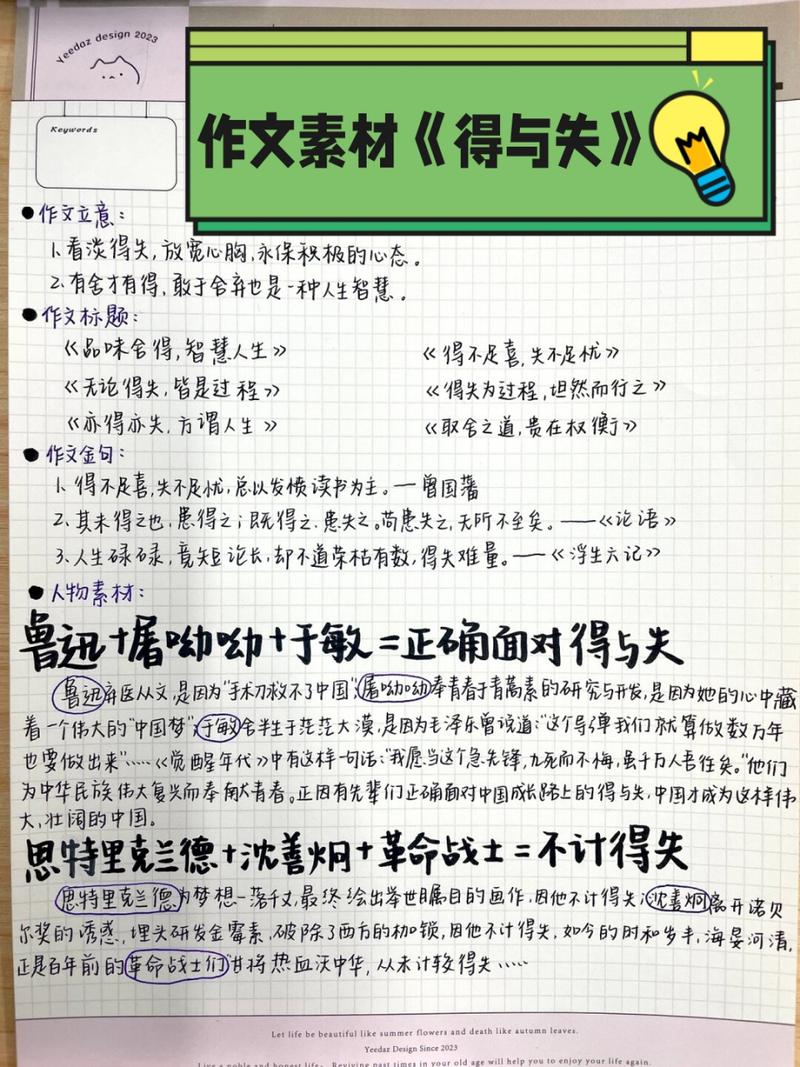 Yeedaz design 2023
作文素材《得与失》
Keywords
●作文立意：
1.看淡得失，放宽心胸，永保积极的心态。
2.有舍才有得，敢于舍弃也是一种人生智慧。
●作文标题：
《品味舍得，智慧人生》 《得不足喜，失不足忧》
《无论得失，皆是过程》 《得失为过程，坦然而行之》
《亦得亦失，方谓人生》 《取舍之道，贵在权衡》
●作文金句：
1.得不足喜，失不足忧，总以发愤读书为主。—曾国藩
2.其未得之也，患得之；既得之，患失之。苟患失之，无所不至矣。——《论语》
3.人生碌碌，竟短论长，却不道荣枯有数，得失难量。——《浮生六记》
●人物素材：
鲁迅+屠呦呦+于敏=正确面对得与失
鲁迅弃医从文，是因为“手术刀救不了中国”；屠呦呦奉青春于青蒿素的研究与开发，是因为她的心中藏
着一个伟大的“中国梦”；于敏舍半生于茫茫大漠，是因为毛泽东曾说道：“这个导弹我们就算做数万年
也要做出来”……《觉醒年代》中有这样一句话：“我愿当这个急先锋，九死而不悔，虽千万人吾往矣。”他们
为中华民族伟大复兴而奉献大青春。正因有先辈们正确面对中国成长路上的得与失，中国才成为这样伟
大，壮阔的中国。
思特里克兰德+沈善炯+革命战士=不计得失
思特里克兰德为梦想一落千丈，最终绘出举世瞩目的画作，因他不计得失；沈善炯离开诺贝
尔奖的诱惑，埋头研发金霉素，破除了西方的枷锁，因他不计得失，如今的时和岁丰，海晏河清，
正是百年前的革命战士们甘将热血沃中华，从未计较得失……
Let life be beautiful like summer flowers and death like autumn leaves.
Yeedaz Design Since 2023
Live a noble and honest life. Reviving past times in your old age will help you to enjoy your life again.